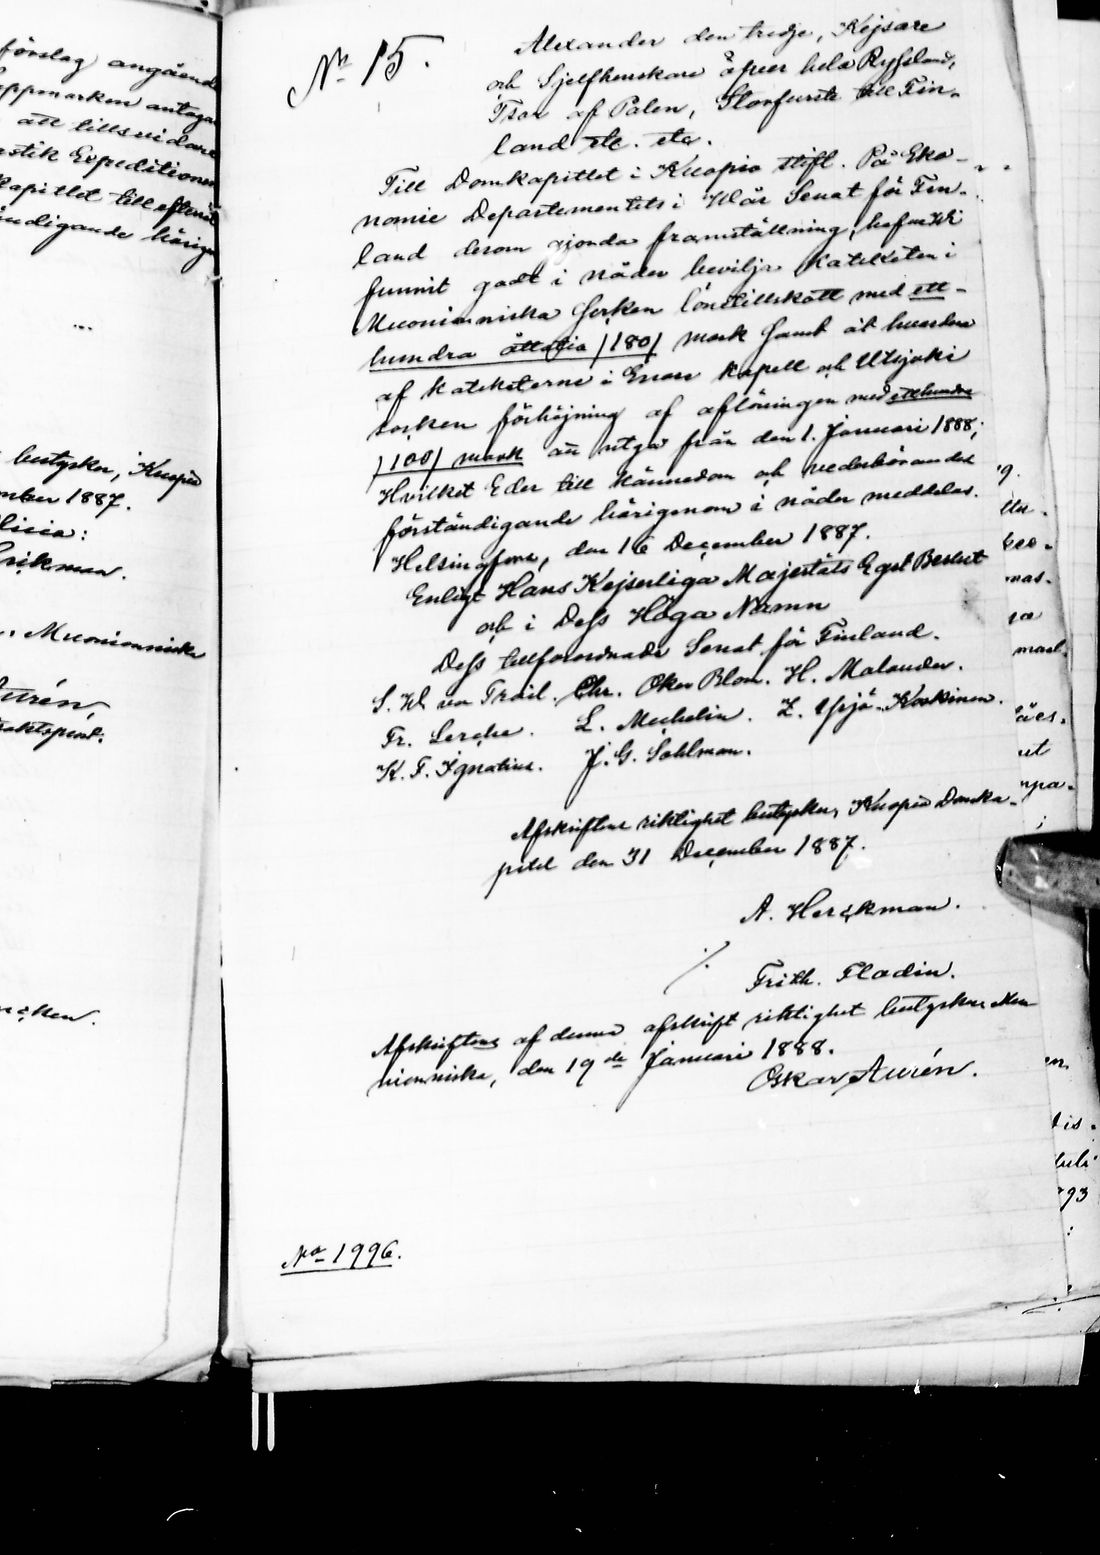 förslag angående
Lappmarken antaga
att tillsvidare
Expeditionen
kapitlet till efterrät
härige
bestyrker, Kuopio
1887.
Muonionniska
Aurén,
No 15.
Alexander den tredje, Kejsare
och Sjelfherrskare öfver hela Ryssland,
Tsar af Polen, Storfurste till Fin-
land etc. etc.
Till Domkapitlet i Kuopio stift. På Eko-
nomie Departementets i Wår Senat för Fin-
land derom gjorda framställning, hafva Wi
funnit godt i nåder bevilja Kateketen i
Muonionniska socken lönetillskott med ett-
hundra åttatio /180/ mark samt åt hvardera
af Kateketerne i Enare Kapell och Utsjoki
socken förhöjning af aflöningen med etthundra
/100/ mark att utgå från den 1. Januari 1888;
Hvilket Eder till kännedom och vederbörandes
förständigande härigenom i nåder meddelas.
Helsingfors, den 16 December 1887.
Enligt Hans Kejserliga Majestäts Eget Beslut
och i Dess Höga Namn
Dess tillförordnade Senat för Finland.
S. W. von Trail. Chr. Oker Blom. H. Molander.
Fr. Lerche. L. Mechelin. Z. Yrjö-Koskinen.
K. F. Ignatius. J. G. Sohlman.
Afskriftens riktighet bestyrker, Kuopio Domka-
pitel den 31 December 1887.
A. Herckman.
./.
Frith. Fladin.
Afskriftens af denna afskrift riktighet bestyrker, Muo
nionniska, den 19de Januari 1888.
Oskar Aurén.
No 1996.